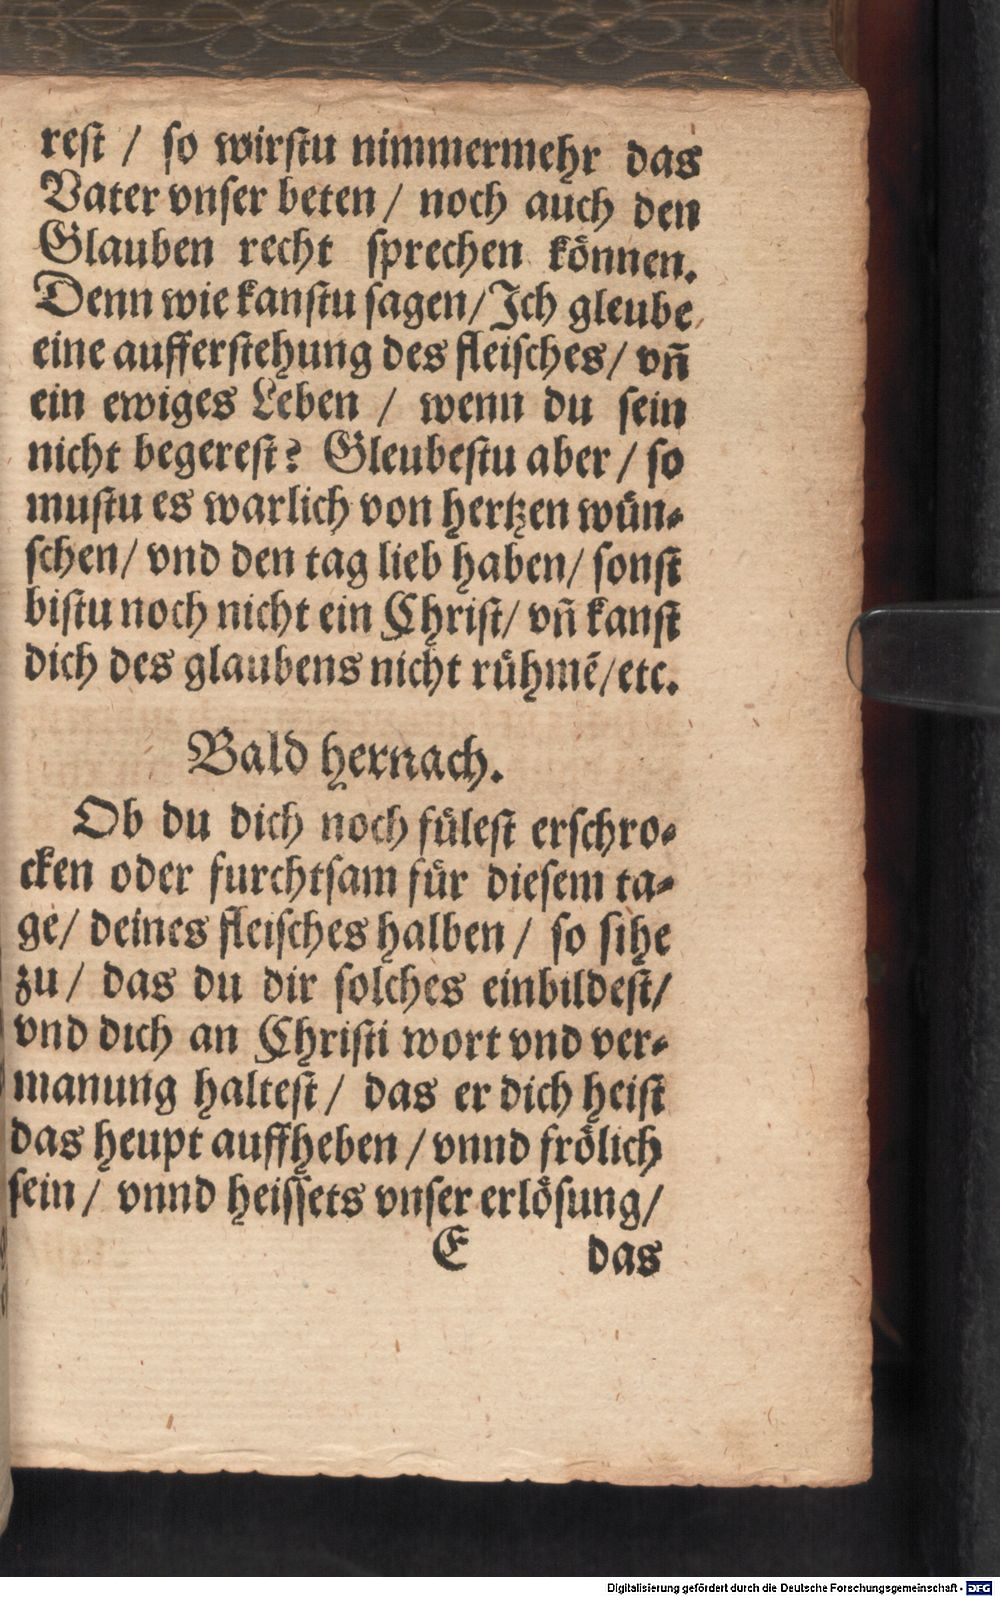 rest / so wirstu nimmermehr das
Vater vnser beten / noch auch den
Glauben recht sprechen können.
Denn wie kanstu sagen / Ich gleube
eine aufferstehung des fleisches / vn̄
ein ewiges Leben / wenn du sein
nicht begerest? Gleubestu aber / so
mustu es warlich von hertzen wün⸗
schen / vnd den tag lieb haben / sonst
bistu noch nicht ein Christ / vn̄ kanst
dich des glaubens nicht rühmē / etc.
Bald hernach.
Ob du dich noch fülest erschro⸗
cken oder furchtsam für diesem ta⸗
ge / deines fleisches halben / so sihe
zu / das du dir solches einbildest /
vnd dich an Christi wort vnd ver⸗
manung haltest / das er dich heist
das heupt auffheben / vnnd frölich
sein / vnnd heissets vnser erlösung /
E das
Digitalisierung gefördert durch die Deutsche Forschungsgemeinschaft - DFG